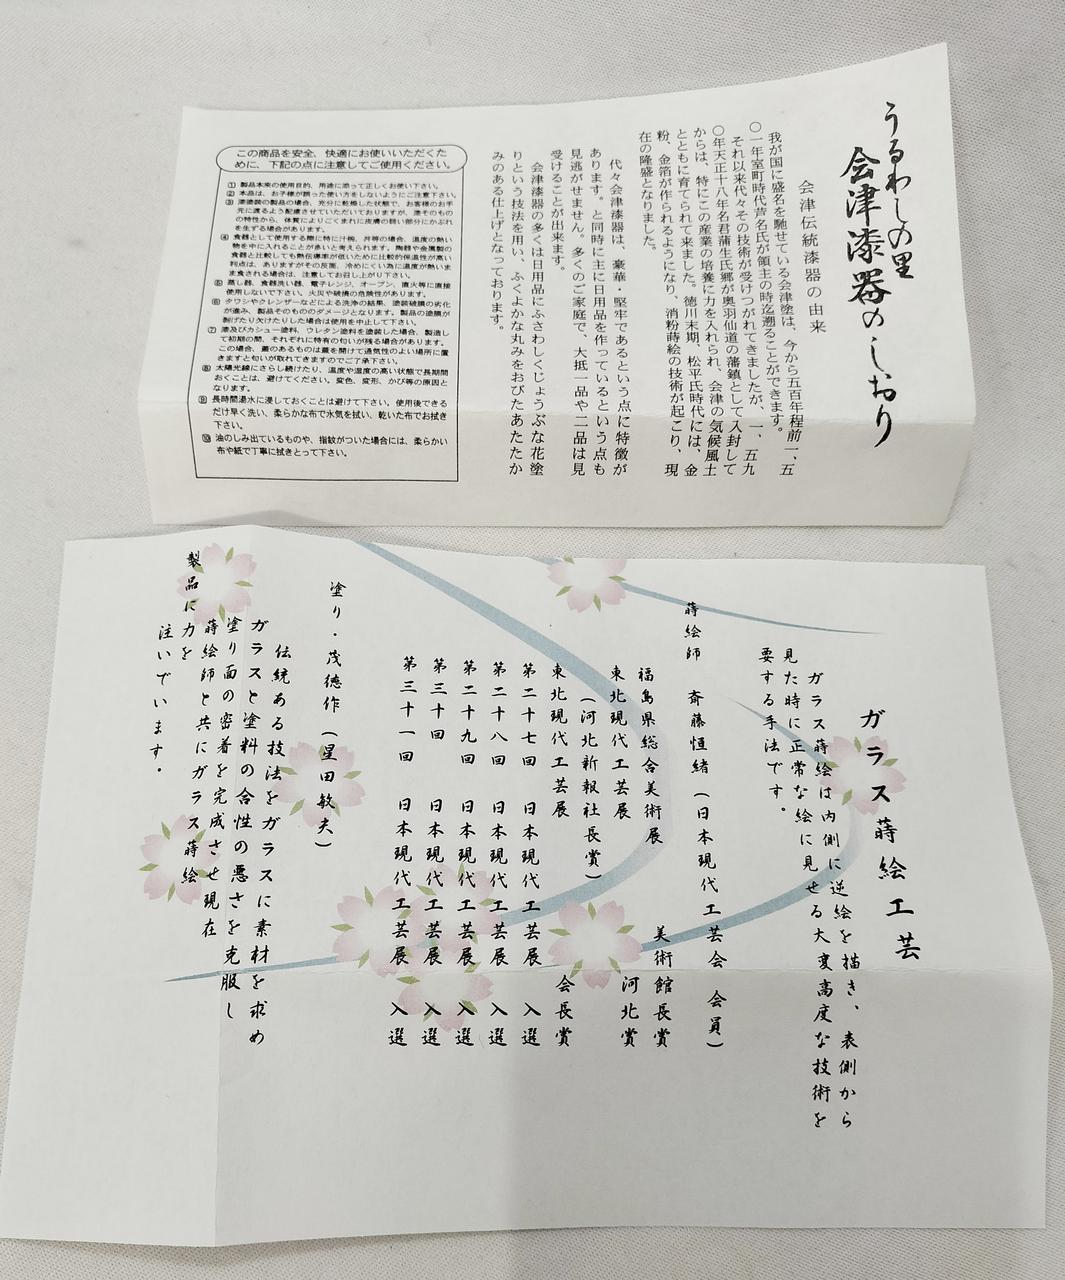 うるわしの里
会津漆器のしおり
会津伝統漆器の由来
我が国に盛名を馳せている会津塗は、今から五百年程前一、五
〇一年室町時代芦名氏が領主の時迄遡ることができます。
それ以来代々その技術が受けつがれてきましたが、一、五九
〇年天正十八年名君蒲生氏郷が奥羽仙道の藩鎮として入封して
からは、特にこの産業の培養に力を入れられ、会津の気候風土
とともに育てられて来ました。徳川末期、松平氏時代には、金
粉、金箔が作られるようになり、消粉蒔絵の技術が起こり、現
在の隆盛となりました。
代々会津漆器は、豪華・堅牢であるという点に特徴が
あります。と同時に主に日用品を作っているという点も
見逃がせません。多くのご家庭で、大抵一品や二品は見
受けることが出来ます。
会津漆器の多くは日用品にふさわしくじょうぶな花塗
りという技法を用い、ふくよかな丸みをおびたあたたか
みのある仕上げとなっております。
この商品を安全、快適にお使いいただくた
めに、下記の点に注意してご使用ください。
① 製品本来の使用目的、用途に添って正しくお使い下さい。
② 本品は、お子様が誤った使い方をしないようにご注意下さい。
③ 漆塗装の製品の場合、充分に乾燥した状態で、お客様のお手
元に渡るよう配慮させていただいておりますが、漆そのもの
の特性から、体質によりごくまれに皮膚の弱い部分にかぶれ
を生ずる場合があります。
④ 食器として使用する際に特に汁椀、丼等の場合、温度の熱い
物を中に入れることが多いと考えられます。陶器や金属製の
食器と比較しても熱伝導率が低いために比較的保温性が高い
利点は、ありますがその反面、冷めにくい為に温度が熱いま
ま食される場合は、注意してお召し上がり下さい。
⑤ 蒸し器、食器洗い器、電子レンジ、オーブン、直火等に直接
使用しないで下さい。火災や破損の危険性があります。
⑥ タワシやクレンザーなどによる洗浄の結果、塗装破損の劣化
が進み、製品そのもののダメージとなります。製品の塗膜が
剝げたり欠けたりした場合は使用を中止して下さい。
⑦ 漆及びカシュー塗料、ウレタン塗料を塗装した場合、製造し
て初期の間、それぞれに特有の匂いが残る場合があります。
この場合、蓋のあるものは蓋を開けて通気性のよい場所に置
きますと匂いが取れてきますのでご了承下さい。
⑧ 太陽光線にさらし続けたり、温度や湿度の高い状態で長期間
おくことは、避けてください。変色、変形、かび等の原因と
なります。
⑨ 長時間湯水に浸しておくことは避けて下さい。使用後できる
だけ早く洗い、柔らかな布で水気を拭い、乾いた布でお拭き
下さい。
⑩ 油のしみ出ているものや、指紋がついた場合には、柔らかい
布や紙で丁寧に拭きとって下さい。
ガラス蒔絵工芸
ガラス蒔絵は内側に逆絵を描き、表側から
見た時に正常な絵に見せる大変高度な技術を
要する手法です。
蒔絵師 斎藤恒緒(日本現代工芸会 会員)
福島県総合美術展 美術館長賞
東北現代工芸展 河北賞
(河北新報社長賞)
東北現代工芸展 会長賞
第二十七回 日本現代工芸展 入選
第二十八回 日本現代工芸展 入選
第二十九回 日本現代工芸展 入選
第三十回 日本現代工芸展 入選
第三十一回 日本現代工芸展 入選
塗り・茂徳作(星田敏夫)
伝統ある技法をガラスに素材を求め
ガラスと塗料の合性の悪さを克服し
塗り面の密着を完成させ現在
蒔絵師と共にガラス蒔絵
製品に力を
注いでいます。